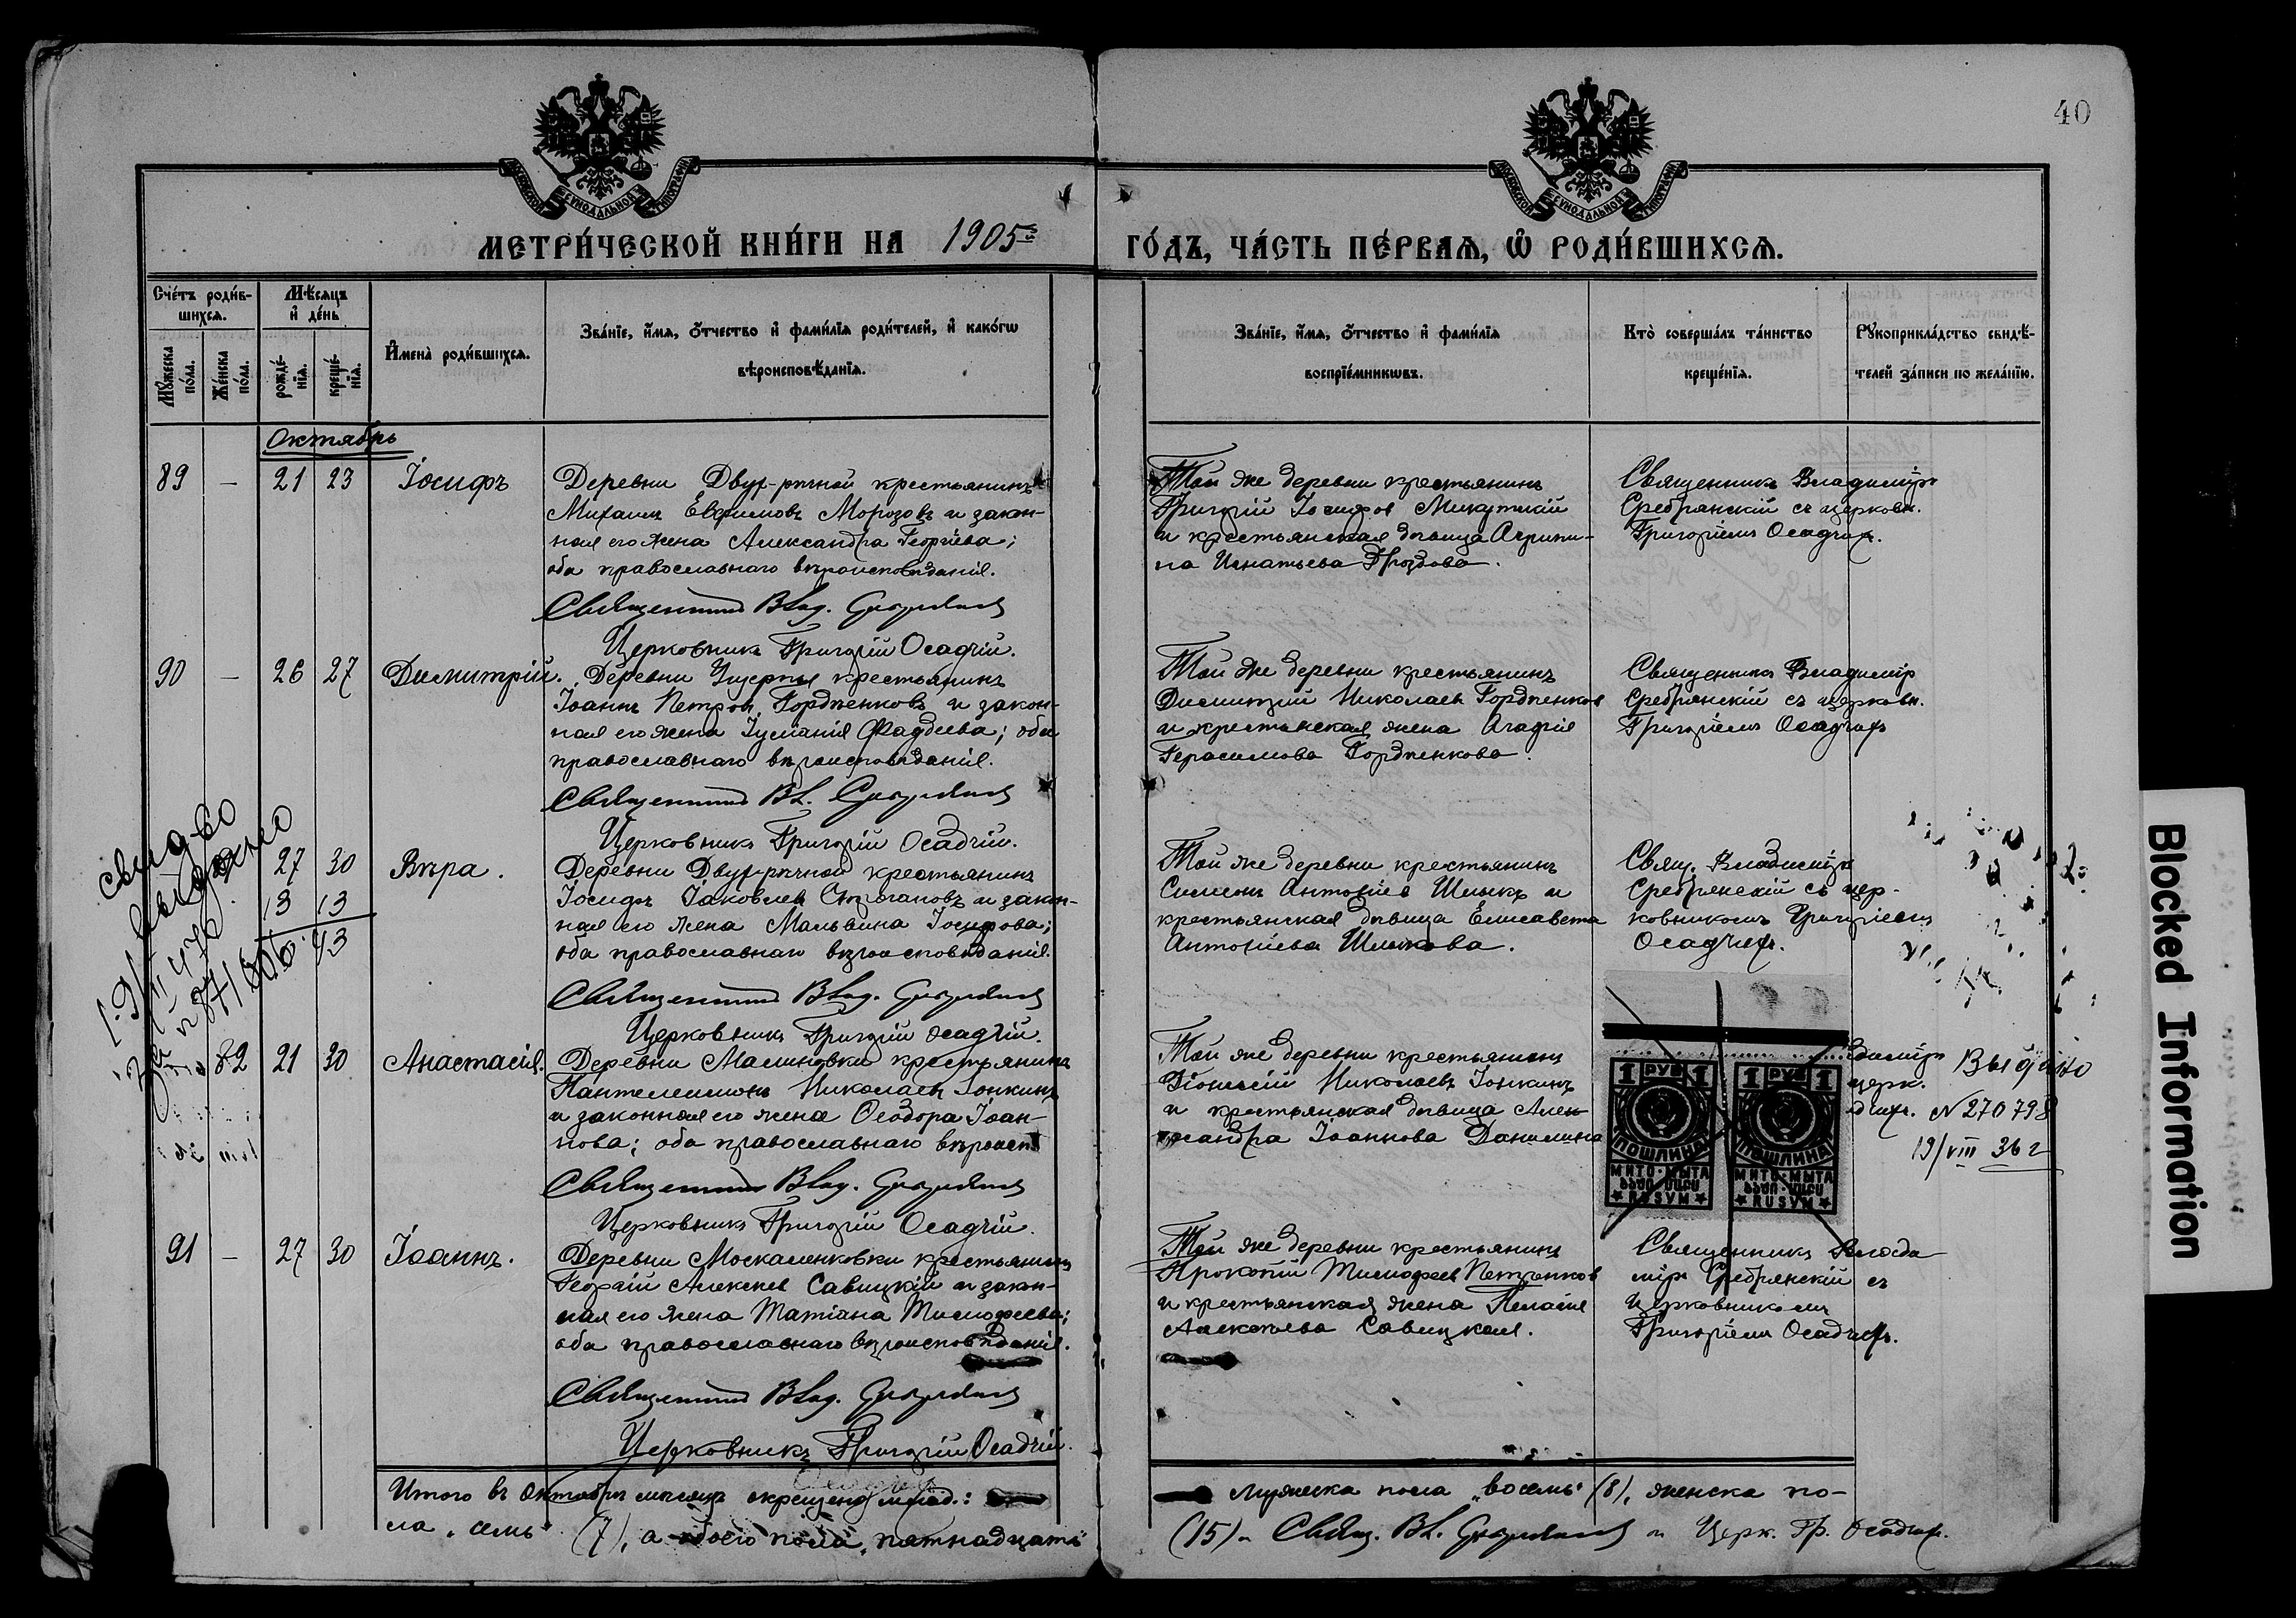 40
МОСКОВСКОЙ СѴНОДАЛЬНОЙ ТИПОГРАФІИ
МОСКОВСКОЙ СѴНОДАЛЬНОЙ ТИПОГРАФІИ
МЕТРИ́ЧЕСКОЙ КНИ́ГИ НА 1905й ГО́ДЪ, ЧА́СТЬ ПЕ́РВАѦ, Ѽ РОДИ́ВШИХСѦ.
Сче́тъ роди́в-
шихсѧ.
Мѣ́сѧцъ
и҆ де́нь
Мꙋ́жеска по́ла.
Же́нска по́ла.
рожде́-
нїѧ.
креще́-
нїѧ.
И҆мена̀ роди́вшихсѧ.
Зва́нїе, и҆́мѧ, ѻ҆́тчество и҆ фами́лїѧ роди́телей, и҆ како́гѡ
вѣроисповѣ́данїѧ.
Зва́нїе, и҆́мѧ, ѻ҆́тчество и҆ фами́лїѧ
воспрїе́мникѡвъ.
Кто̀ соверша́лъ та́инство
креще́нїѧ.
Рꙋкоприкла́дство свидѣ́-
телей за́писи по жела́нїю.
Октябрь
89 — 21 23 Іосифъ
Деревни Двух-рѣчной крестьянинъ
Михаилъ Евфимовъ Морозовъ и закон-
ная его жена Александра Георгіева;
оба православнаго вѣроисповѣданія.
Священникъ Влад. Сребрянскій
Церковникъ Григорій Осадчій.
Той же деревни крестьянинъ
Григорій Іосифов Микутскій
и крестьянская дѣвица Агрипи-
на Игнатьева Дроздова.
Священникъ Владиміръ
Сребрянскій съ церковн.
Григоріемъ Осадчим.
90 — 26 27 Димитрій.
Деревни крестьянинъ
Іоаннъ Петров. Гордѣенковъ и закон-
ная его жена Іуліанія Фаддеева; оба
православнаго вѣроисповѣданія.
Священникъ Вл. Сребрянскій
Церковникъ Григорій Осадчій.
Той же деревни крестьянинъ
Димитрій Николаевъ Гордѣенков
и крестьянская жена Агафія
Герасимова Гордѣенкова.
Священникъ Владимір
Сребрянскій съ церковн.
Григоріемъ Осадчим
свид-во
выдано
27 30 Вѣра.
13 13
43
Деревни Двух-рѣчной крестьянинъ
Іосифъ Іаковлев и закон-
ная его жена Мальвина Іосифова;
оба православнаго вѣроисповѣданія.
Священникъ Влад. Сребрянскій
Церковникъ Григорій Осадчій.
Той же деревни крестьянинъ
Симеонъ Антоніев Шлыкъ и
крестьянская дѣвица Елисавета
Антоніева Шлыкова.
Свящ. Владиміръ
Сребрянскій съ цер-
ковникомъ Григоріемъ
Осадчим.
82 21 30 Анастасія.
Деревни Малиновки крестьянинъ
Пантелеимонъ Николаевъ Іонкинъ
и законная его жена Ѳеодора Іоан-
нова; оба православнаго вѣроисп
Священникъ Влад. Сребрянскій
Церковникъ Григорій Осадчій.
Той же деревни крестьянинъ
Діонисій Николаевъ Іонкинъ
и крестьянская дѣвица Алек-
сандра Іоаннова Данилина
1 РУБ 1
1 РУБ 1
ПОШЛИНА
ПОШЛИНА
МИТО·МЫТА
МИТО·МЫТА
RUSYM
RUSYM
диміръ
церк.
дчим.
Выдано
N 270798
19/VIII 36 г
91 — 27 30 Іоаннъ.
Деревни Москаленковки крестьянинъ
Георгій Алексѣев Савицкій и закон-
ная его жена Татіана Тимофеева;
оба православнаго вѣроисповѣданія.
Священникъ Влад. Сребрянскій
Церковникъ Григорій Осадчій.
Той же деревни крестьянинъ
Прокопій Тимофеев Петренков
и крестьянская жена Пелагія
Алексѣева Савицкая.
Священникъ Влади-
міръ Сребрянскій съ
церковникомъ
Григоріемъ Осадчим.
Итого въ октябрѣ мѣсяцѣ крещено млад.: мужеска пола „восемь" (8), женска по-
ла „семь" (7), а обоего пола „пятнадцать" (15) – Свящ. Вл. Сребрянскій и Церк. Гр. Осадчій.
Blocked Information